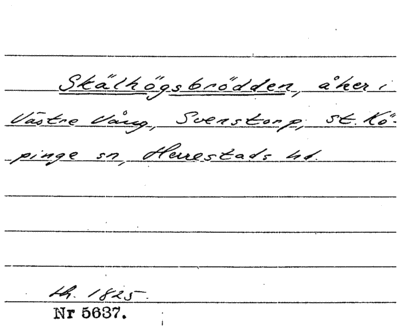 Skälhögsbrödden, åker i
Västre Vång, Svenstorp, St. Kö-
pinge sn, Herrestads hd.
lh. 1825.
Nr 5637.